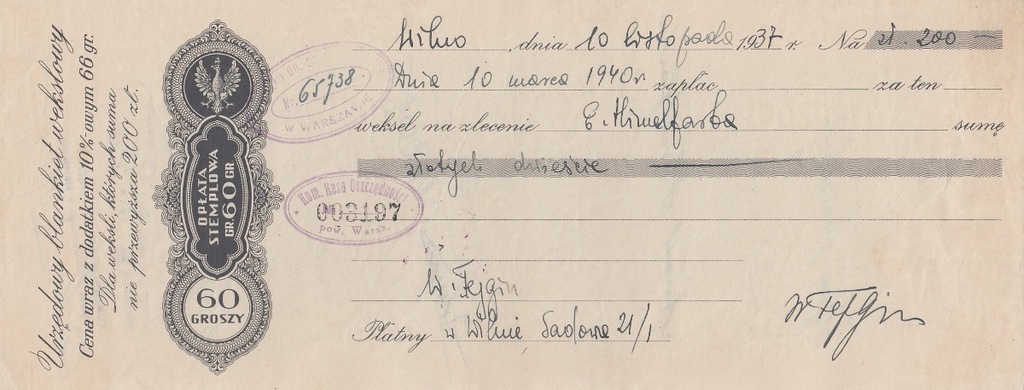 Urzędowy blankiet wekslowy
Cena wraz z dodatkiem 10%-owym 66 gr.
Dla weksli, których suma
nie przewyższa 200 zł.
OPŁATA
STEMPLOWA
GR 60 GR
60
GROSZY
Wilno, dnia 10 listopada 1937 r. Na zł. 200 —
Dnia 10 marca 1940 r zapłac za ten
weksel na zlecenie E. Himelfarba sumę
złotych dwieście
Nr. 65738
W WARSZAWIE
Kom. Kasa Oszczędności
003197
pow. Warsz.
W. Fejgin
Płatny w Wilnie, Sadowa 21/1
W Fejgin